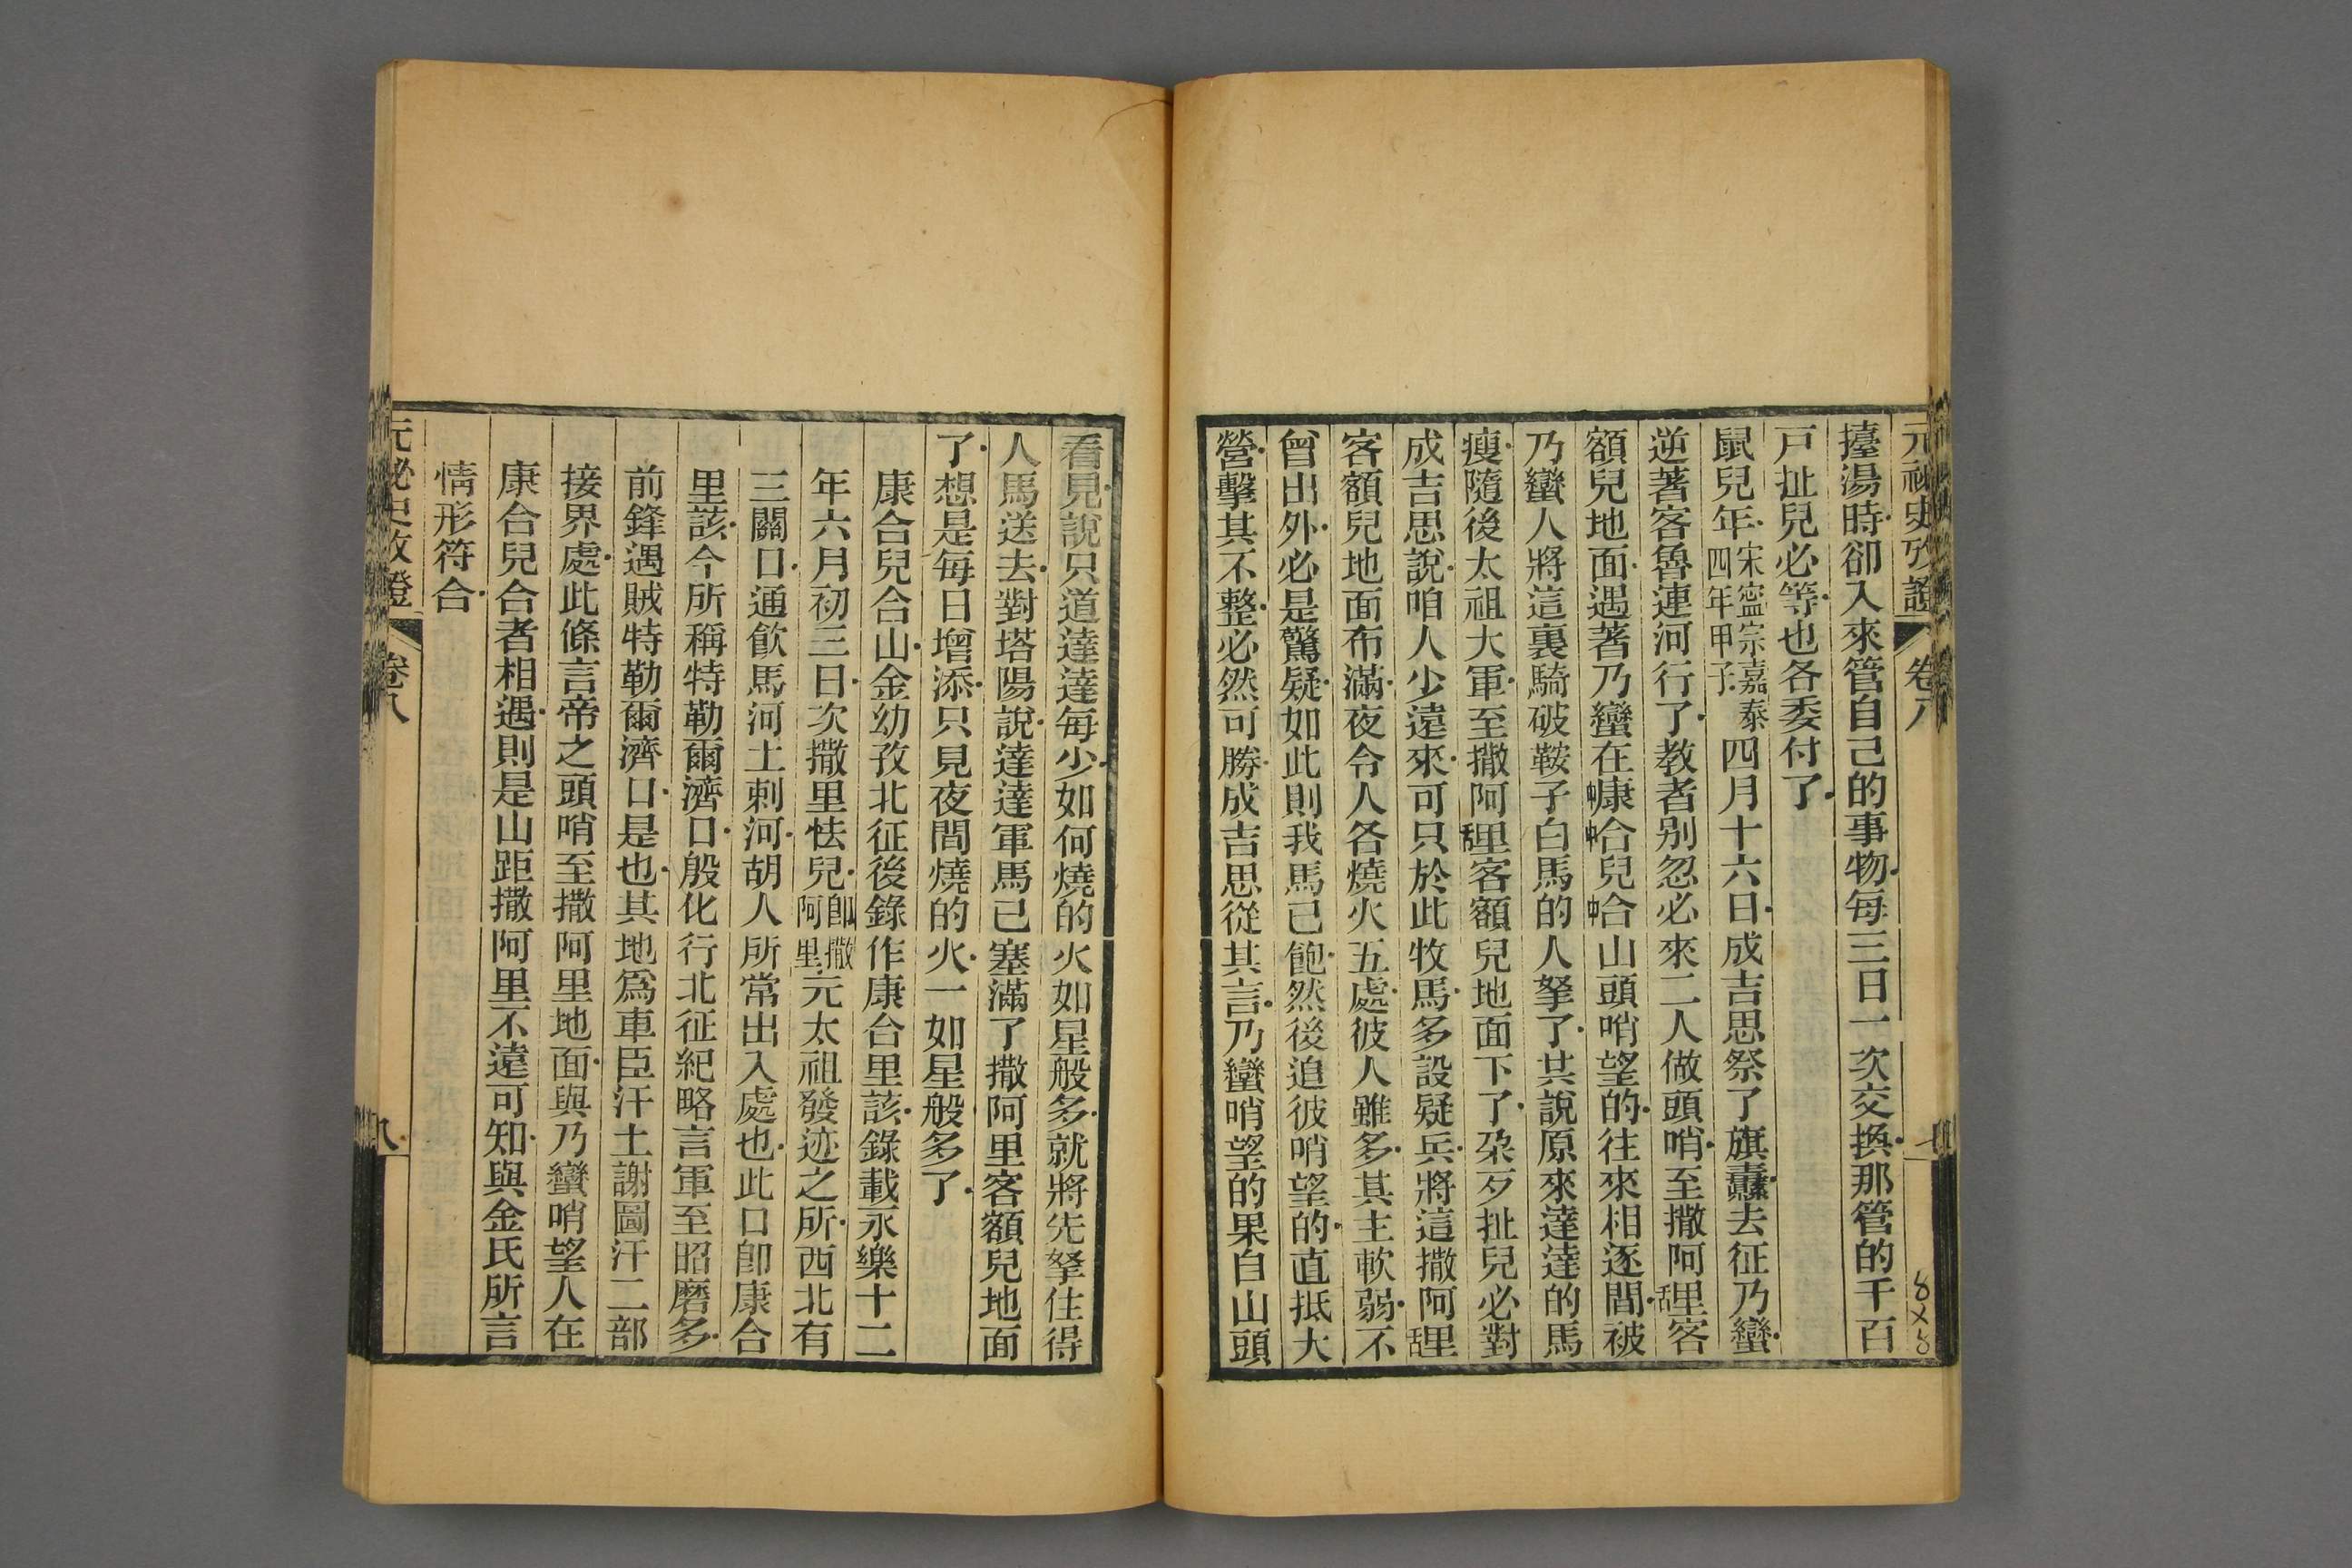 元祕史攷證 卷八
擡湯時卻入來管自己的事物每三日一次交換那管的千百
戸扯兒必等也各委付了
鼠兒年宋寧宗嘉泰四年甲子四月十六日成吉思祭了旗纛去征乃蠻
逆著客魯連河行了教者別忽必來二人做頭哨至撒阿舌里客
額兒地面遇著乃蠻在中康中合兒中合山頭哨望的往來相逐間被
乃蠻人將這裏騎破鞍子白馬的人拏了共說原來達達的馬
瘦隨後太祖大軍至撒阿舌里客額兒地面下了朶歹扯兒必對
成吉思說咱人少遠來可只於此牧馬多設疑兵將這撒阿舌里
客額兒地面布滿夜令人各燒火五處彼人雖多其主軟弱不
曾出外必是驚疑如此則我馬已飽然後追彼哨望的直抵大
營擊其不整必然可勝成吉思從其言乃蠻哨望的果自山頭
看見說只道達達每少如何燒的火如星般多就將先拏住得
人馬送去對塔陽說達達軍馬已塞滿了撒阿里客額兒地面
了想是每日增添只見夜間燒的火一如星般多了
康合兒合山金幼孜北征後錄作康合里該錄載永樂十二
年六月初三日次撒里怯兒卽撒阿里元太祖發迹之所西北有
三關口通飲馬河土剌河胡人所常出入處也此口卽康合
里該今所稱特勒爾濟口殷化行北征紀略言軍至昭磨多
前鋒遇賊特勒爾濟口是也其地爲車臣汗土謝圖汗二部
接界處此條言帝之頭哨至撒阿里地面與乃蠻哨望人在
康合兒合者相遇則是山距撒阿里不遠可知與金氏所言
情形符合
元祕史攷證 卷八 八